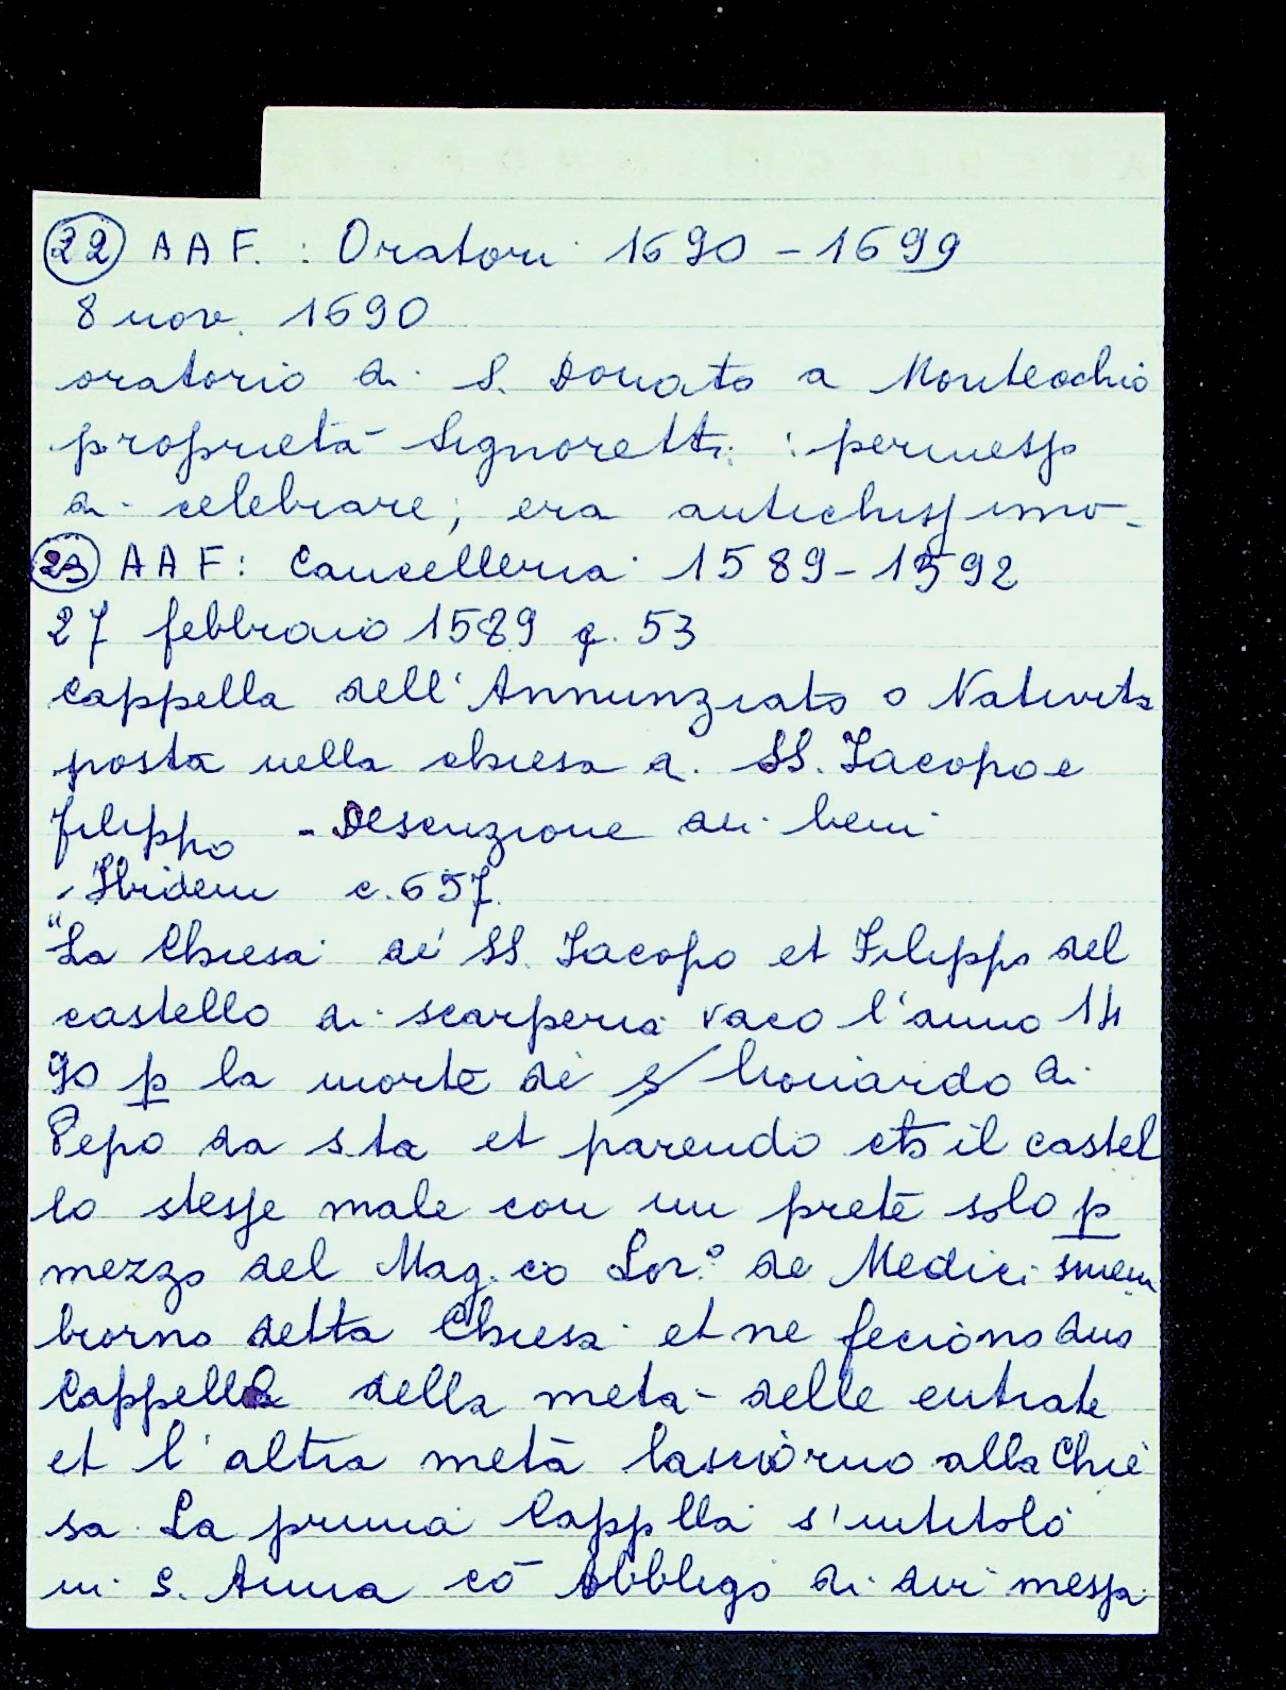 22 A A F. : Oratori 1690 - 1699
8 nov. 1690
oratorio di S. Donato a Montecchio
proprietà Signoretti : permesso
di celebrare; era antichissimo -
23 A A F : Cancelleria 1589 - 1592
27 febbraio 1589 c. 53
Cappella dell'Annunziata o Natività
posta nella chiesa di SS. Jacopo e
filippo - Descrizione di beni
- Ibidem c. 657.
"La Chiesa di SS. Jacopo et Filippo del
castello di scarperia vaco l'anno 14
90 p la morte di s/ Lionardo di
Pepo da sta et parendo che il castel
lo stesse male con un prete solo p
mezzo del Mag.co Lor.o de Medici smem
brorno detta Chiesa et ne feciono due
Cappelle della metà delle entrate
et l'altra metà lasciòrno alla Chie
sa. La prima Cappella s'intitolò
in S. Anna cō Obbligo di dir messa